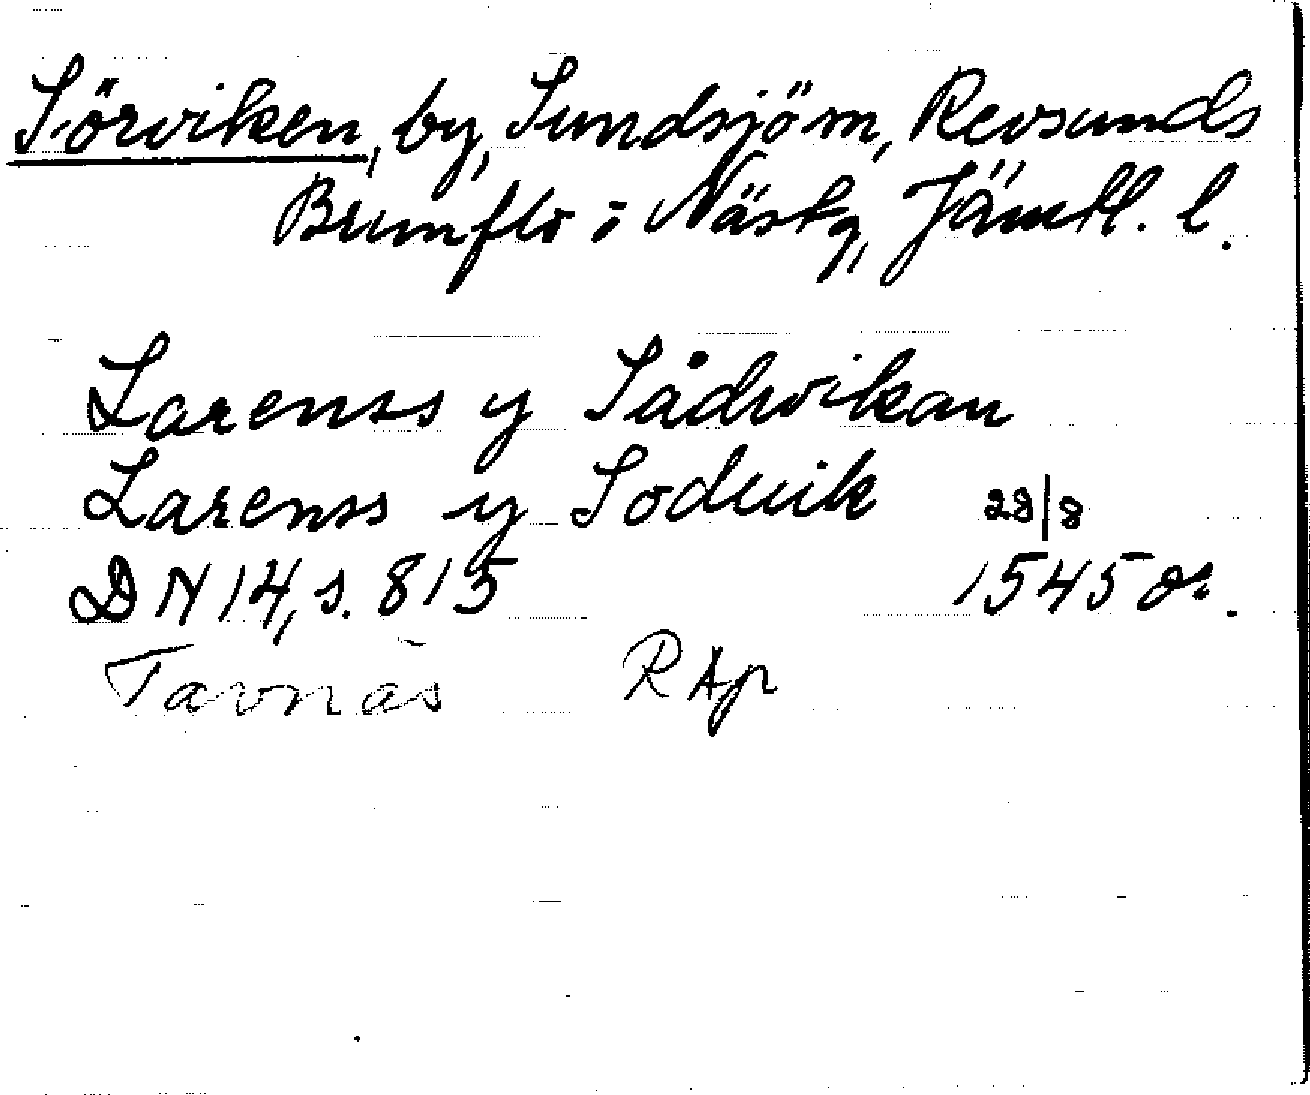 Sörviken, by, Sundsjöm, Revsunds
Brunflo o Näsk, Jämtl. l.
Larenss y Sådwikan
Larenss y Soduik 28/8
DN 14, s. 815 1545 or.
Tavnäs RAp